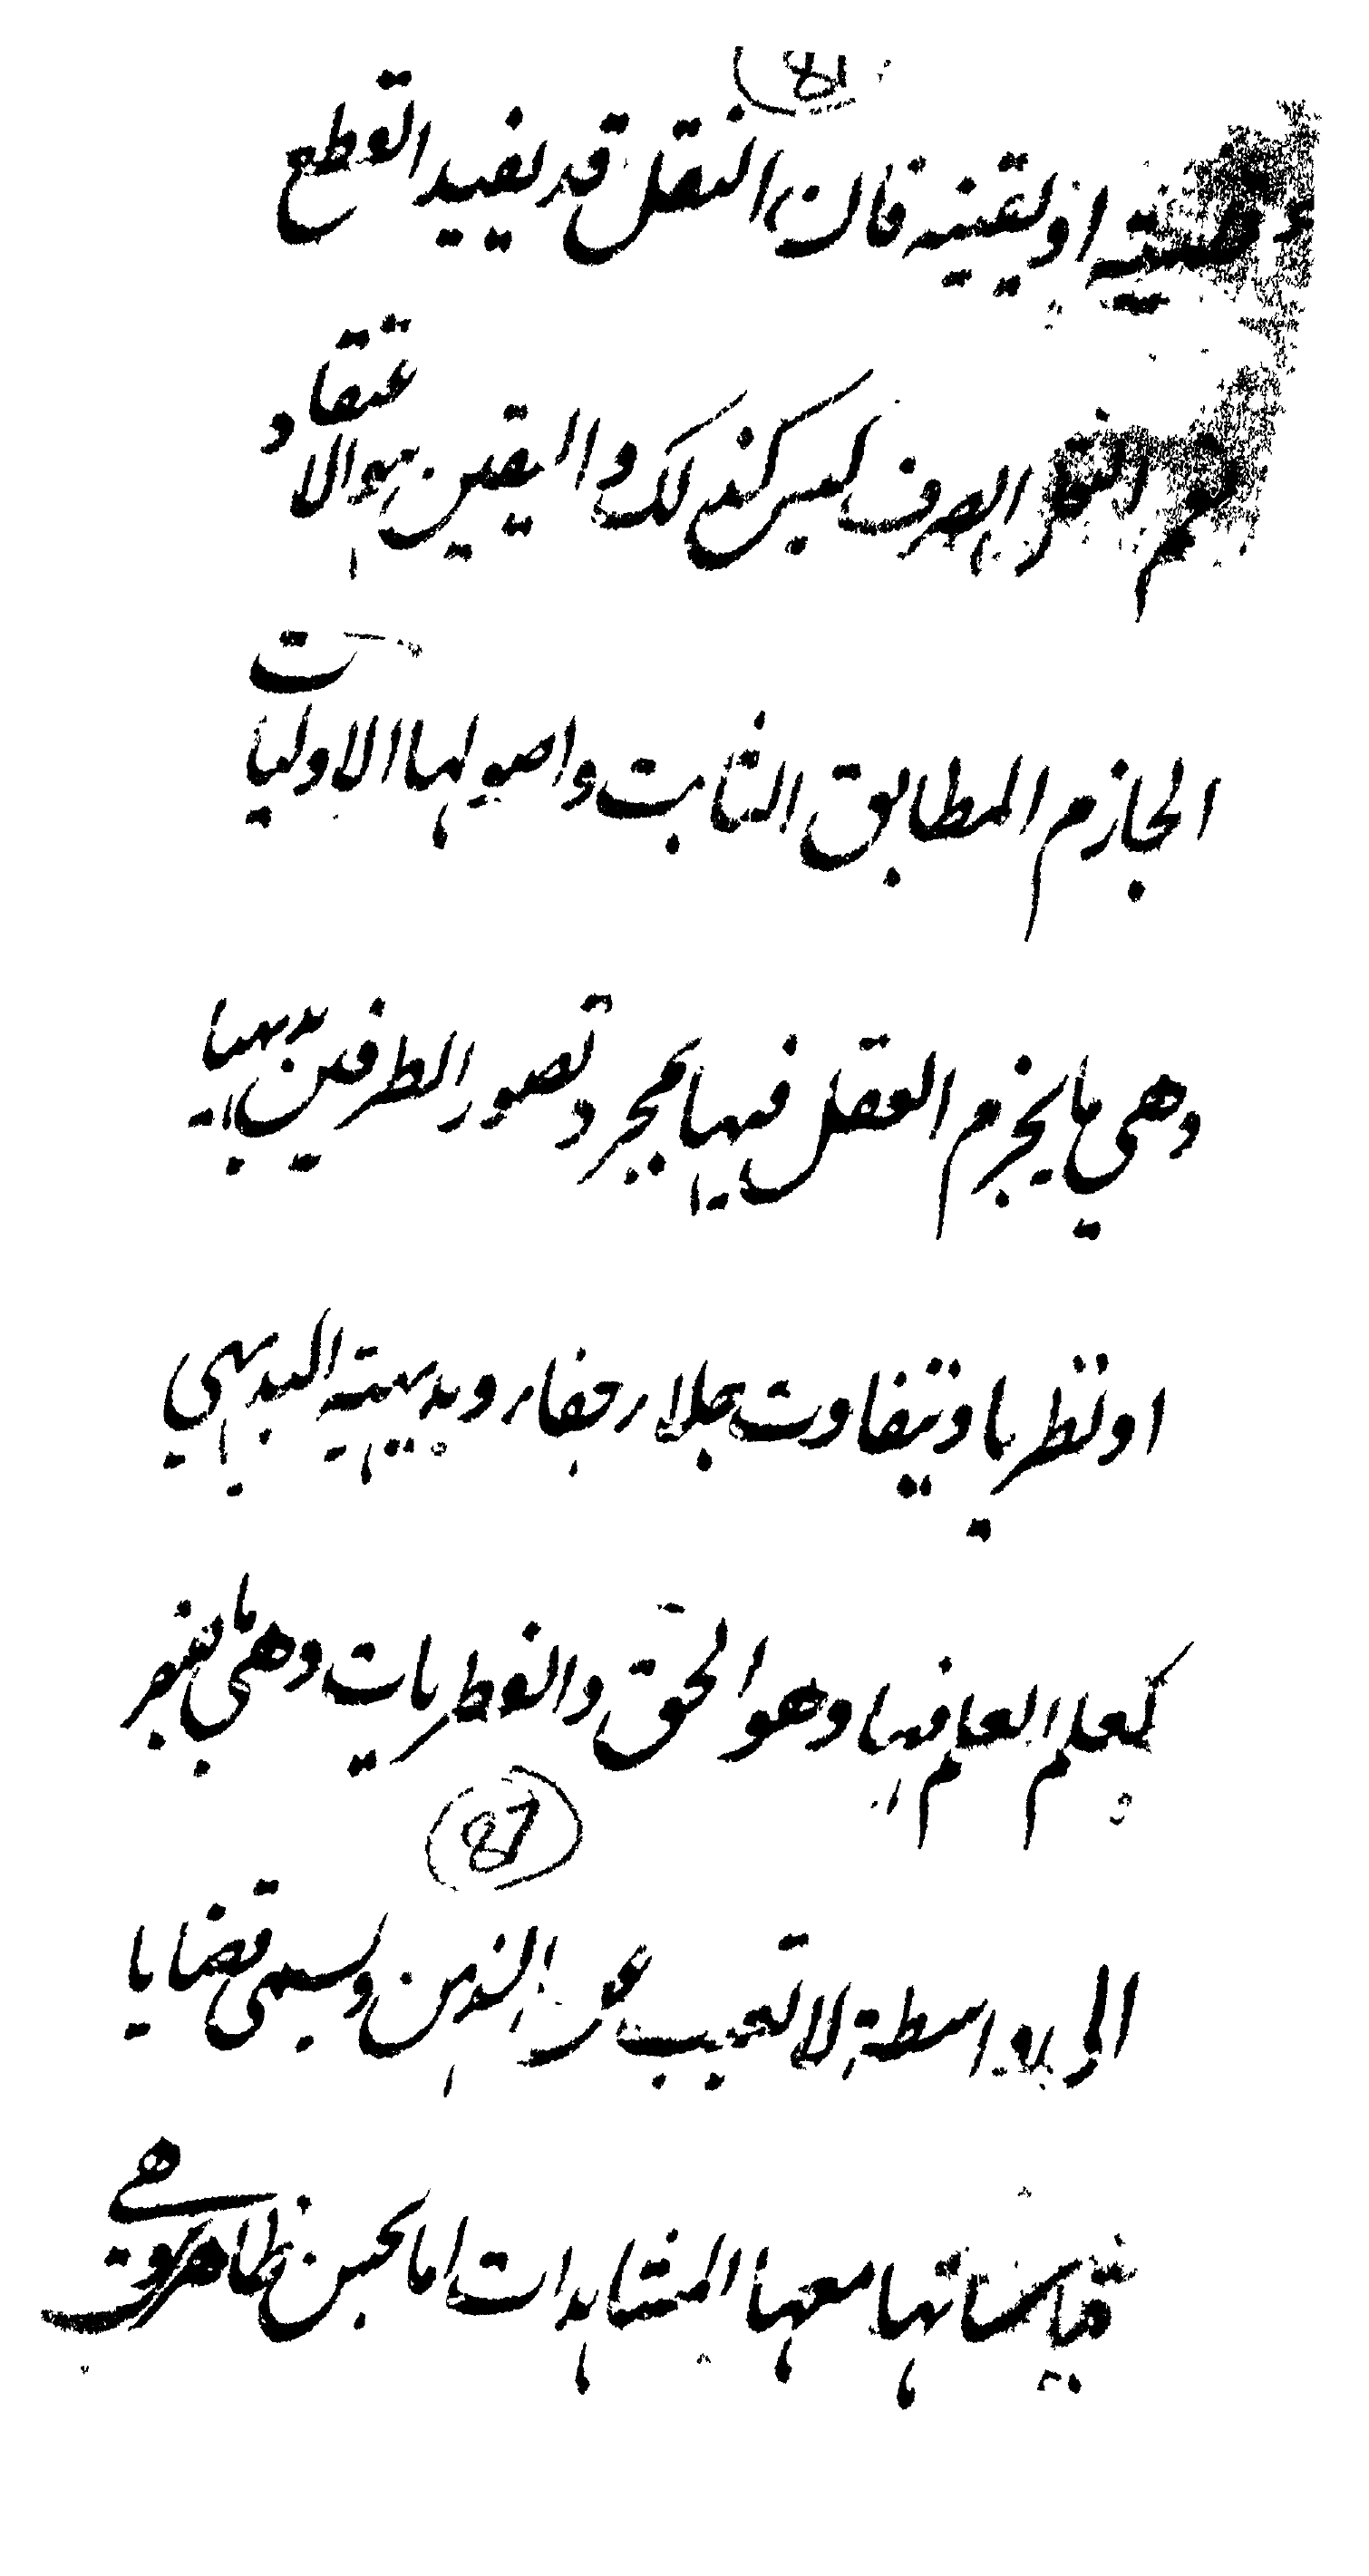 او يقينية فان النقل قد يفيد القطع
نعم النقل الصرف ليس كذلك واليقين هو الاعتقاد
الجازم المطابق الثابت واصولها الاوليات
وهي ما يجزم العقل فيها بمجرد تصور الطرفين بديهيا
او نظريا وتتفاوت جلاء وخفاء وبديهية البديهي
كعلم العلم فيها وهو الحق والفطريات وهي ما يفتقر
87
الى واسطة لا تغيب عن الذهن وتسمى قضايا
قياساتها معها المشاهدات اما بحس ظاهر وهي